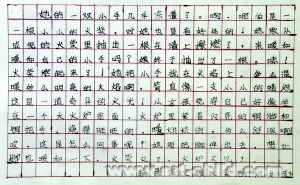 她的一双小手几乎冻僵了。啊,哪怕是一
根小小的火柴,对她也是有好处的。她敢从
成把的火柴里抽出一根在墙上擦燃了,来暖
暖和自己的小手吗?她终于抽出了一根。
火柴燃起来了!她把小手拢在火焰上。多么温
暖多么明亮的火焰啊,简直像一支小小的蜡烛
这是一道奇异的火光!小女孩觉得自己好像坐
在一个大火炉里面,火炉装着闪亮的铜脚和
铜把手,烧得旺旺的,暖烘烘的。多么舒服
这是怎么回事呢?她刚把脚伸出去
也暖和一下,火柴灭了,火炉不见了。